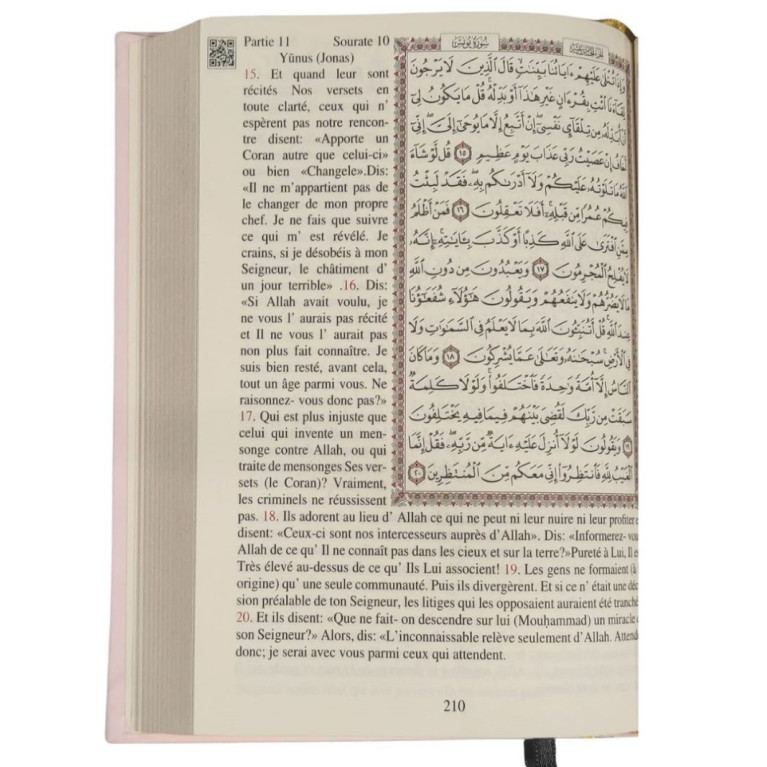 Partie 11 Sourate 10
Yūnus (Jonas)
15. Et quand leur sont
récités Nos versets en
toute clarté, ceux qui n’
espèrent pas notre rencon-
tre disent: «Apporte un
Coran autre que celui-ci»
ou bien «Changele».Dis:
«Il ne m’appartient pas de
le changer de mon propre
chef. Je ne fais que suivre
ce qui m’ est révélé. Je
crains, si je désobéis à mon
Seigneur, le châtiment d’
un jour terrible» .16. Dis:
«Si Allah avait voulu, je
ne vous l’ aurais pas récité
et Il ne vous l’ aurait pas
non plus fait connaître. Je
suis bien resté, avant cela,
tout un âge parmi vous. Ne
raisonnez- vous donc pas?»
17. Qui est plus injuste que
celui qui invente un men-
songe contre Allah, ou qui
traite de mensonges Ses ver-
sets (le Coran)? Vraiment,
les criminels ne réussissent
pas. 18. Ils adorent au lieu d’ Allah ce qui ne peut ni leur nuire ni leur profiter
disent: «Ceux-ci sont nos intercesseurs auprès d’Allah». Dis: «Informerez- vou
Allah de ce qu’ Il ne connaît pas dans les cieux et sur la terre?»Pureté à Lui, Il e
Très élevé au-dessus de ce qu’ Ils Lui associent! 19. Les gens ne formaient (à
origine) qu’ une seule communauté. Puis ils divergèrent. Et si ce n’ était une déc
sion préalable de ton Seigneur, les litiges qui les opposaient auraient été tranché
20. Et ils disent: «Que ne fait- on descendre sur lui (Mouḥammad) un miracle
son Seigneur?» Alors, dis: «L’inconnaissable relève seulement d’Allah. Attend
donc; je serai avec vous parmi ceux qui attendent.
سُورَةُ يُونُسَ
وَإِذَا تُتْلَىٰ عَلَيْهِمْ ءَايَاتُنَا بَيِّنَٰتٍ قَالَ ٱلَّذِينَ لَا يَرْجُونَ
لِقَآءَنَا ٱئْتِ بِقُرْءَانٍ غَيْرِ هَٰذَآ أَوْ بَدِّلْهُ قُلْ مَا يَكُونُ لِىٓ
أَنْ أُبَدِّلَهُۥ مِن تِلْقَآئِ نَفْسِىٓ إِنْ أَتَّبِعُ إِلَّا مَا يُوحَىٰٓ إِلَىَّ إِنِّىٓ
أَخَافُ إِنْ عَصَيْتُ رَبِّى عَذَابَ يَوْمٍ عَظِيمٍ ١٥ قُل لَّوْ شَآءَ
ٱللَّهُ مَا تَلَوْتُهُۥ عَلَيْكُمْ وَلَآ أَدْرَىٰكُم بِهِۦ فَقَدْ لَبِثْتُ
فِيكُمْ عُمُرًا مِّن قَبْلِهِۦٓ أَفَلَا تَعْقِلُونَ ١٦ فَمَنْ أَظْلَمُ
مِمَّنِ ٱفْتَرَىٰ عَلَى ٱللَّهِ كَذِبًا أَوْ كَذَّبَ بِـَٔايَٰتِهِۦٓ إِنَّهُۥ
لَا يُفْلِحُ ٱلْمُجْرِمُونَ ١٧ وَيَعْبُدُونَ مِن دُونِ ٱللَّهِ
مَا لَا يَضُرُّهُمْ وَلَا يَنفَعُهُمْ وَيَقُولُونَ هَٰٓؤُلَآءِ شُفَعَٰٓؤُنَا
عِندَ ٱللَّهِ قُلْ أَتُنَبِّـُٔونَ ٱللَّهَ بِمَا لَا يَعْلَمُ فِى ٱلسَّمَٰوَٰتِ وَلَا
فِى ٱلْأَرْضِ سُبْحَٰنَهُۥ وَتَعَٰلَىٰ عَمَّا يُشْرِكُونَ ١٨ وَمَا كَانَ
ٱلنَّاسُ إِلَّآ أُمَّةً وَٰحِدَةً فَٱخْتَلَفُوا۟ وَلَوْلَا كَلِمَةٌ
سَبَقَتْ مِن رَّبِّكَ لَقُضِىَ بَيْنَهُمْ فِيمَا فِيهِ يَخْتَلِفُونَ
١٩ وَيَقُولُونَ لَوْلَآ أُنزِلَ عَلَيْهِ ءَايَةٌ مِّن رَّبِّهِۦ فَقُلْ إِنَّمَا
ٱلْغَيْبُ لِلَّهِ فَٱنتَظِرُوٓا۟ إِنِّى مَعَكُم مِّنَ ٱلْمُنتَظِرِينَ ٢٠
210